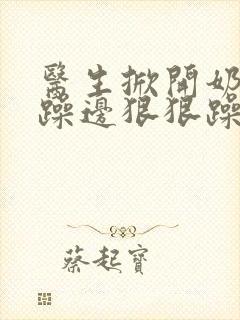 醫生掀開奶
躁邊狠狠躁
蔡起寶